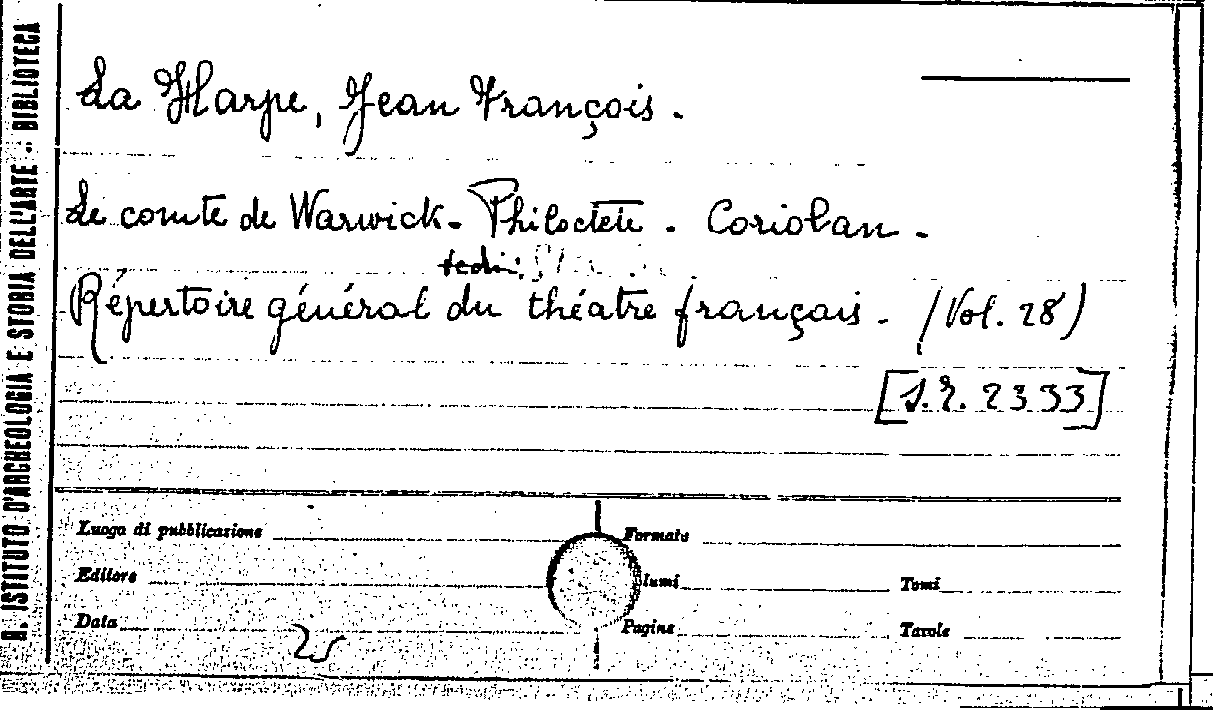 R. ISTITUTO D'ARCHEOLOGIA E STORIA DELL'ARTE - BIBLIOTECA
La Harpe, Jean François.
Le comte de Warwick - Philoctete - Coriolan -
Répertoire général du théatre français - (Vol. 28)
[S.R. 2333]
Luogo di pubblicazione
Formato
Editore
lumi
Tomi
Data 25
Pagine
Tavole